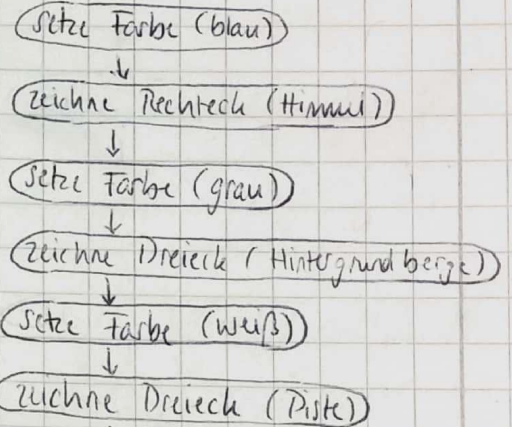 setze Farbe (blau)
zeichne Rechteck (Himmel)
setze Farbe (grau)
zeichne Dreieck (Hintergrundberge)
setze Farbe (weiß)
zeichne Dreieck (Piste)